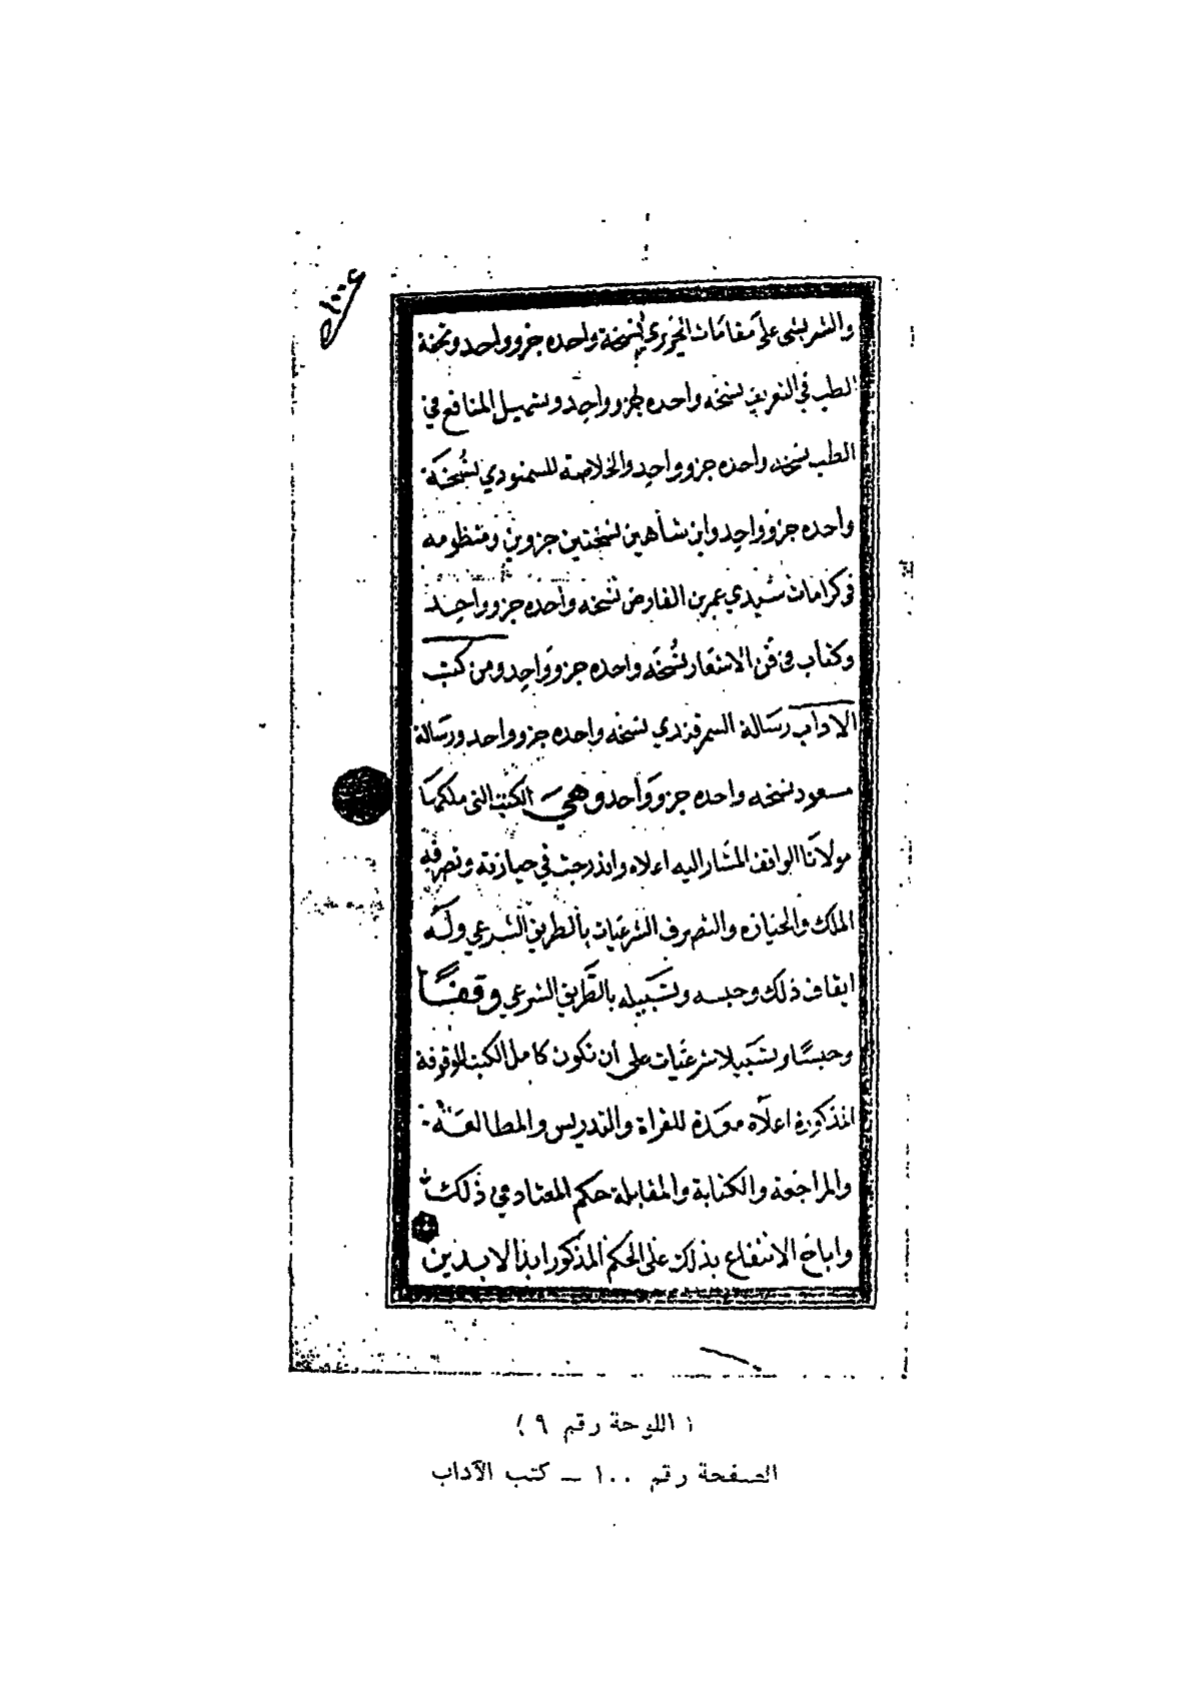 والشربشى على مقامات الحريري نسخة واحده جزو واحد وتحفة
الطب في التعريف نسخه واحده جزو واحد وتسهيل المنافع في
الطب نسخه واحده جزو واحد والخلاصة للسمنودي نسخة
واحده جزو واحد وابن شاهين نسختين جزوين ومنظومه
فى كرامات سيدي عمر بن الفارض نسخه واحده جزو واحد
وكتاب فى فن الاشعار نسخه واحده جزو واحد ومن كتب
الاداب رسالة السمرقندي نسخه واحده جزو واحد ورسالة
مسعود نسخه واحده جزو واحد وهي الكتب التى ملكها
مولانا الواقف المشار اليه اعلاه واندرجت في حيازته وتصرفه
الملك والحيازه والتصرف الشرعيات بالطريق الشرعي وله
ايقاف ذلك وحبسه وتسبيله بالطريق الشرعي وقفًا
وحبسًا وتسبيلا شرعيات على أن تكون كامل الكتب الموقوفة
المذكورة اعلاه معدة للقراة والتدريس والمطالعة
والمراجعة والكتابة والمقابلة حكم المعتاد في ذلك
واباح الانتفاع بذلك على الحكم المذكور ابد الابدين
( اللوحة رقم ٩ )
الصفحة رقم ١٠٠ – كتب الآداب